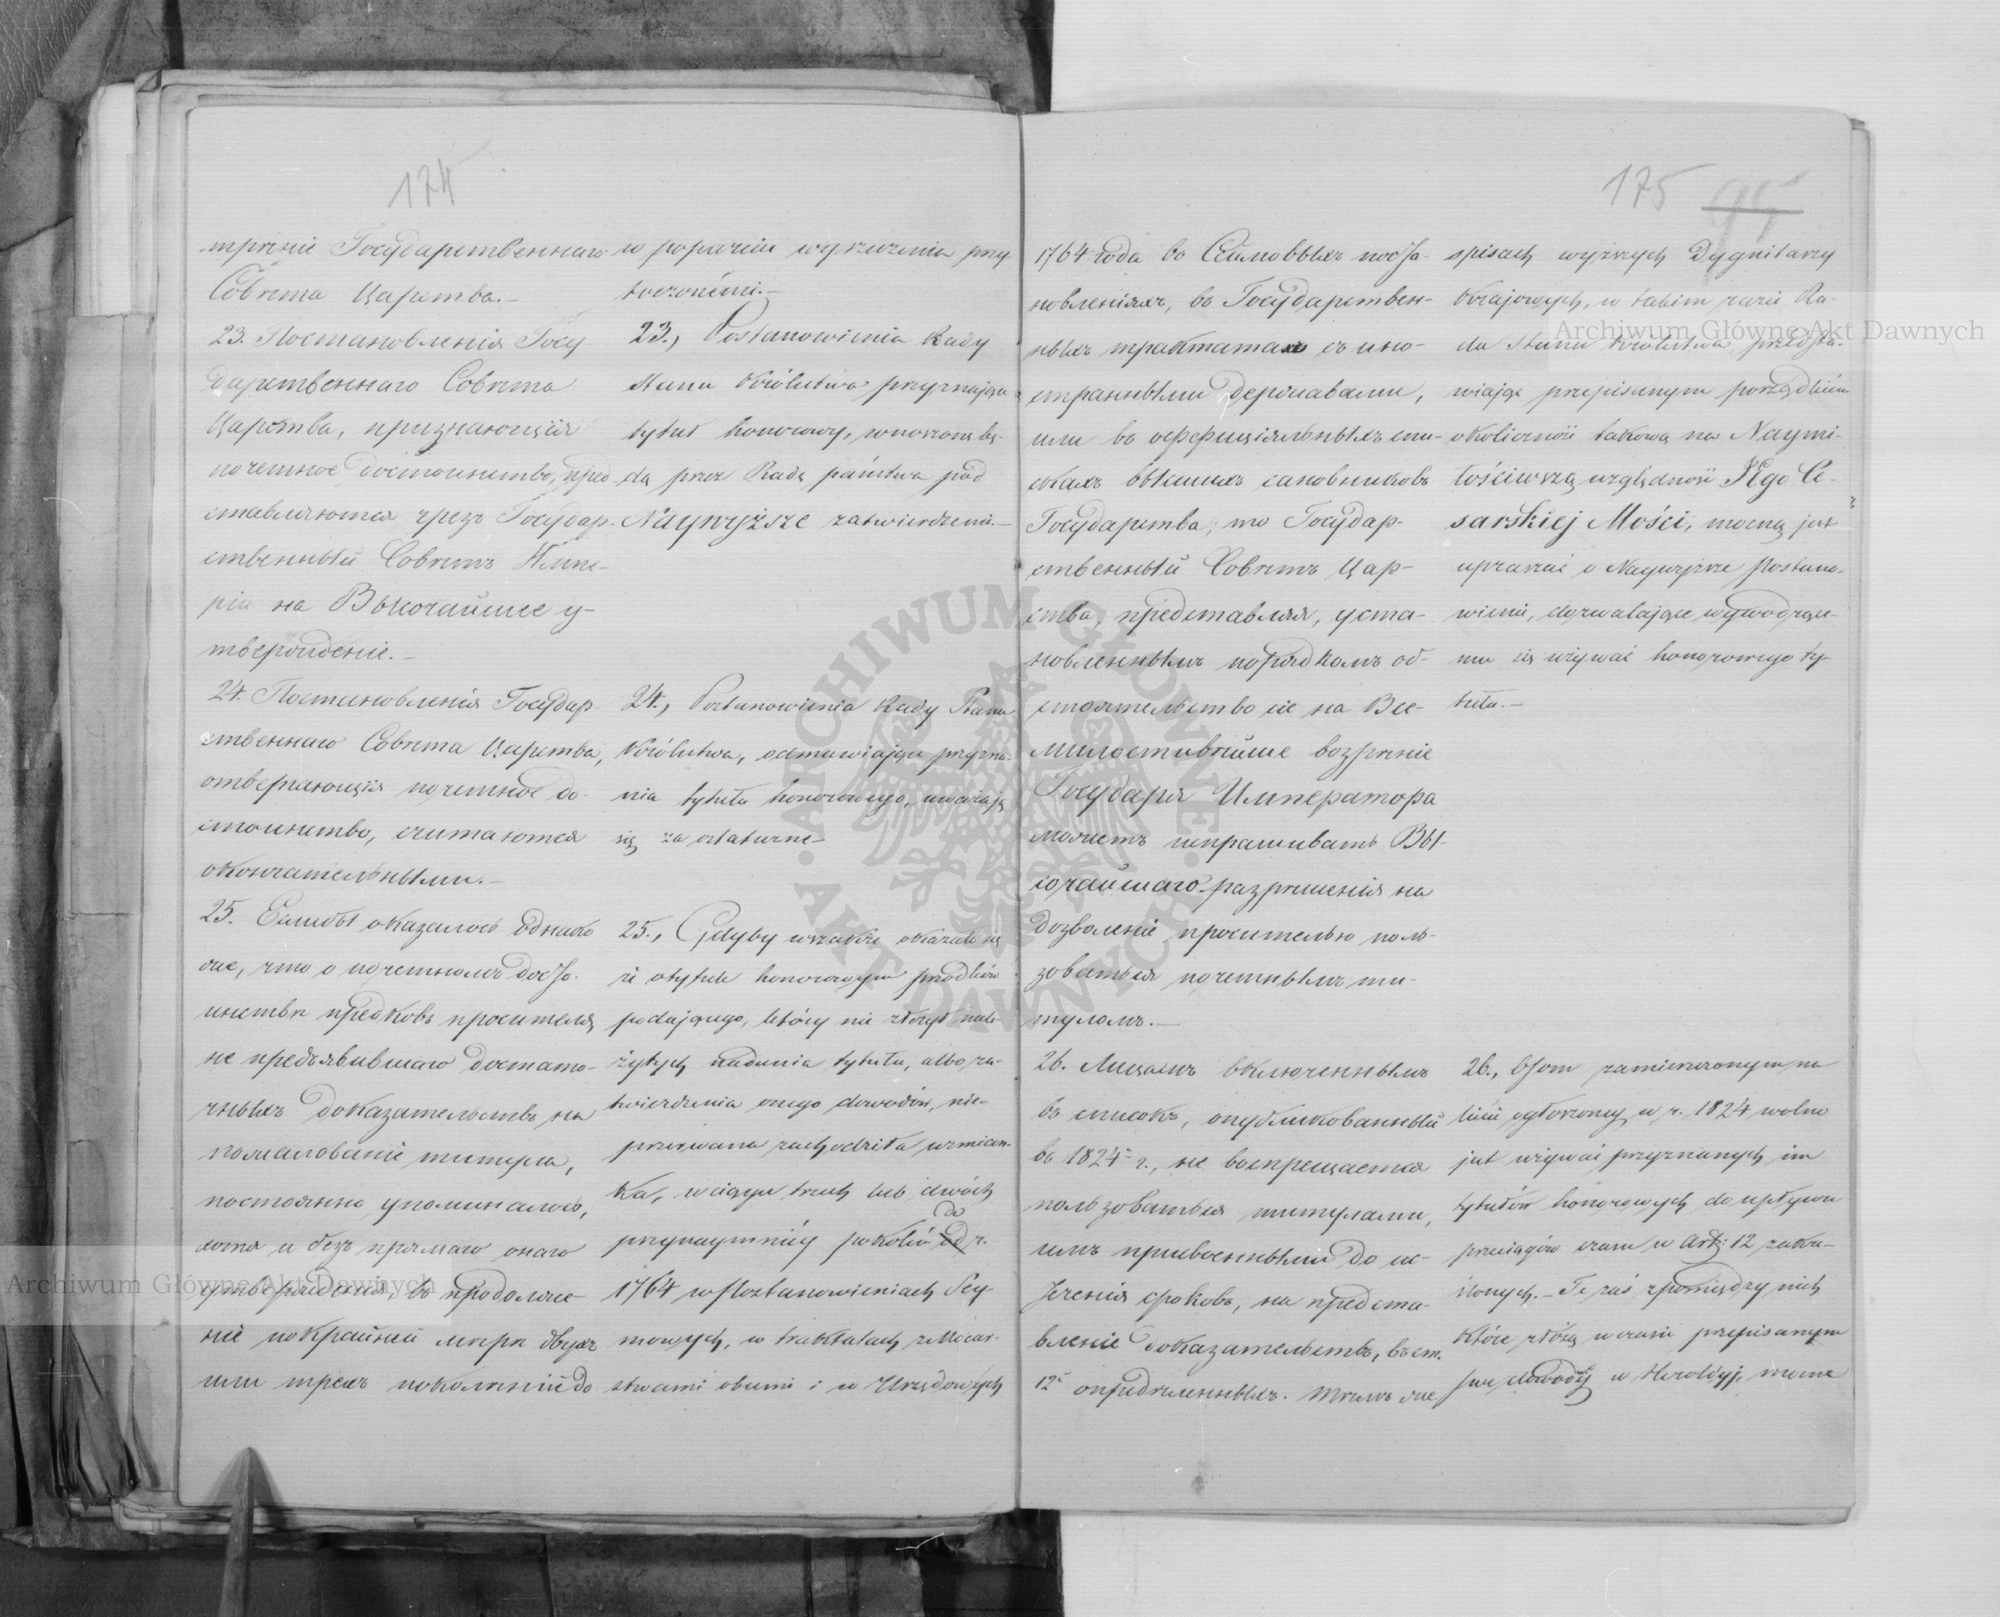 174
трѣніе Государственнаго
Совѣта Царства.—
23. Постановленія Госу-
дарственнаго Совѣта
Царства, признающія
почетное достоинство, пред-
ставляются чрезъ Государ-
ственный Совѣтъ Импе-
ріи на Высочайшее у-
твержденіе.—
24. Постановленія Государ-
ственнаго Совѣта Царства,
отвергающія почетное до-
стоинство, считаются
окончательными.—
25. Еслибы оказалось однако
же, что о почетномъ досто-
инствѣ предковъ просителя,
не предъявившаго достато-
чныхъ доказательствъ на
пожалованіе титула,
постоянно упоминалось,
хотя и безъ прямаго онаго
утвержденія, въ продолже-
ніе по крайней мѣрѣ двухъ
или трехъ поколѣній до
w poparciu wyrzeczenia przy-
toczonémi.—
23., Postanowienia Rady
Stanu Królestwa przyznające
tytuł honorowy, wnoszone bę-
dą przez Radę państwa pod
Naywyższe zatwierdzenie.—
24., Postanowienia Rady Stanu
Królestwa, odmawiające przyzna-
nia tytułu honorowego, uważają
się za ostateczne—
25., Gdyby wszakże okazało się
że o tytule honorowym przodków
podającego, który nie złożył nale-
żytych nadania tytułu, albo za-
twierdzenia onego dowodów, nie-
przerwana zachodziła wzmian-
ka, w ciągu trzech lub dwóch
przynaymniéy pokoleń od do r.
1764 w Postanowieniach Sey-
mowych, w traktatach z Mocar-
stwami obcemi i w Urzędowych
175 95
1764 года въ Сеймовыхъ поста-
новленіяхъ, въ Государствен-
ныхъ трактатахъ съ ино-
странными державами,
или въ оффиціяльныхъ спи-
скахъ высшихъ сановниковъ
Государства; то Государ-
ственный Совѣтъ Цар-
ства, представляя, уста-
новленнымъ порядкомъ об-
стоятельство сіе на Все-
милостивѣйше возрѣніе
Государя Императора
можетъ испрашивать Вы-
сочайшаго разрѣшенія на
дозволеніе просителю поль-
зоваться почетнымъ ти-
туломъ.—
26. Лицамъ включеннымъ
въ списокъ, опубликованный
въ 1824 г., не воспрещается
пользоваться титулами,
имъ присвоенными до ис-
теченія сроковъ, на предста-
вленіе доказательствъ, въ ст.
12й опредѣленныхъ. Тѣмъ же
spisach wyższych Dygnitarzy
Krajowych, w takim razie Ra-
da Stanu Królestwa przedsta-
wiając przepisanym porządkiem
okoliczność takową na Naymi-
łościwszą względność Jego Ce-
sarskiej Mości, mocną jest
upraszać o Naywyższe postano-
wienie, dozwalające wywodzące-
mu się używać honorowego ty-
tułu.—
26., Osom zamieszczonym na
liście ogłoszonej w r. 1824 wolno
jest używać przyznanych im
tytułów honorowych do upływu
przeciągów czasu w Art: 12 zakre-
ślonych.— Te zaś z pomiędzy nich
które złożą w czasie przepisanym
swe dowody w Heroldyi, mocne
Archiwum Główne Akt Dawnych
Archiwum Główne Akt Dawnych
ARCHIWUM GŁÓWNE AKT DAWNYCH